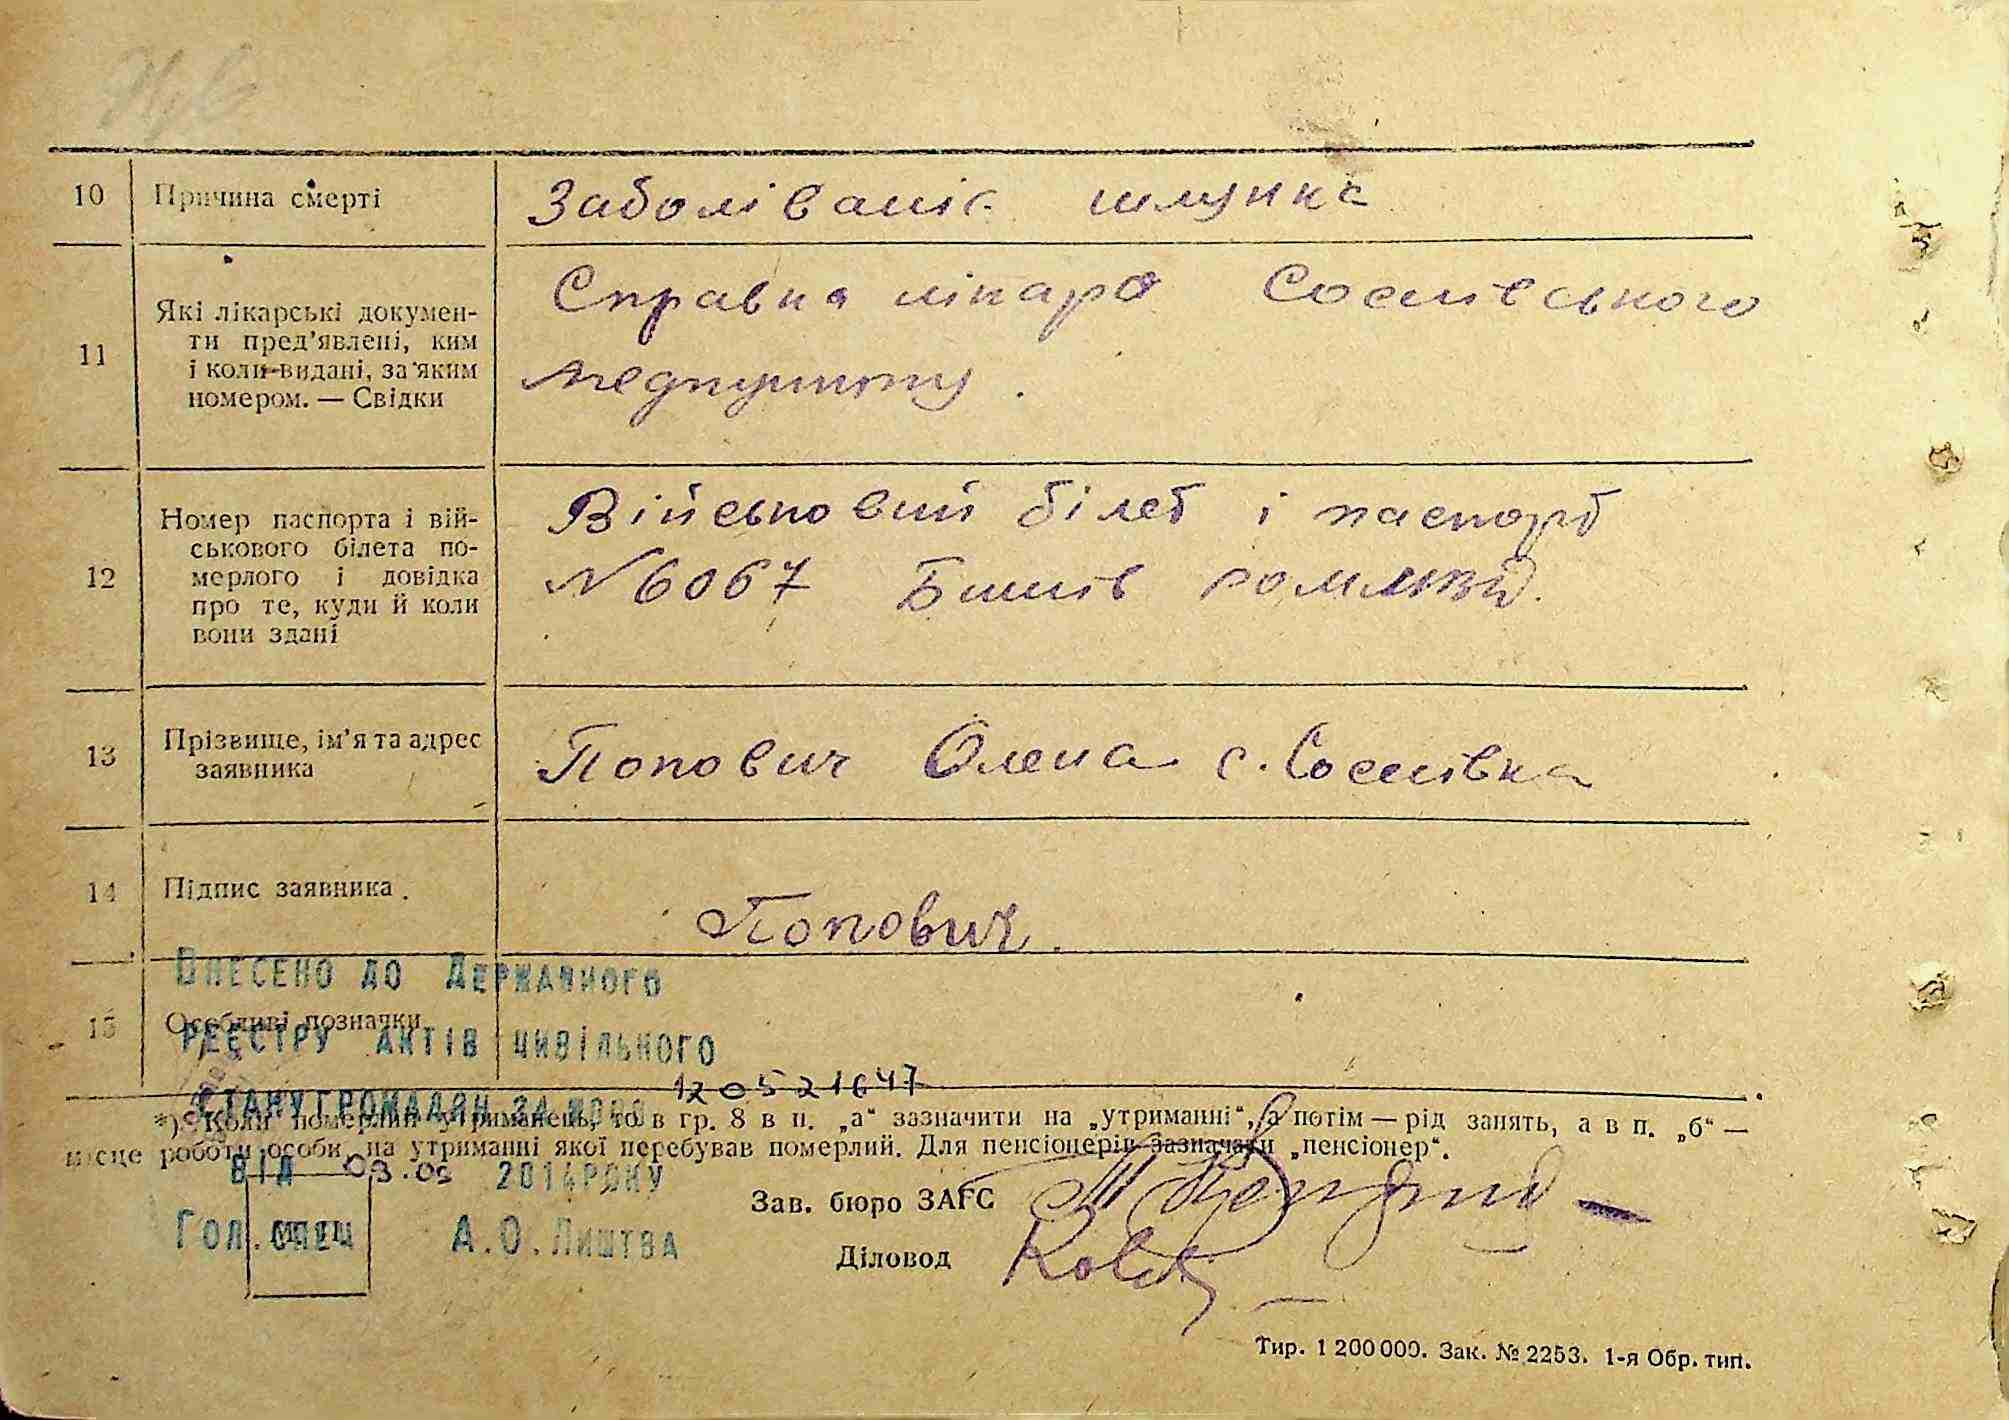 10 Причина смерті Заболіваніє шлунка
11 Які лікарські докумен-
ти пред'явлені, ким
і коли видані, за яким
номером. — Свідки
Справка лікаря Соснівського
медпункту.
12 Номер паспорта і вій-
ськового білета по-
мерлого і довідка
про те, куди й коли
вони здані
Військовий білет і паспорт
№ 6067
13 Прізвище, ім'я та адрес
заявника
Попович Олена с. Соснівка
14 Підпис заявника.
Попович.
15 Особливі позначки
Внесено до Державного
реєстру актів цивільного
стану громадян за
120521647
від 09.09 2014 року
Гол. спец А.О. Лиштва
*) Коли померлий утриманець, то в гр. 8 в п. „а“ зазначити на „утриманні“, а потім — рід занять, а в п. „б“ —
місце роботи особи, на утриманні якої перебував померлий. Для пенсіонерів зазначати „пенсіонер“.
Зав. бюро ЗАГС
Діловод
М. П.
Тир. 1 200 000. Зак. № 2253. 1-я Обр. тип.